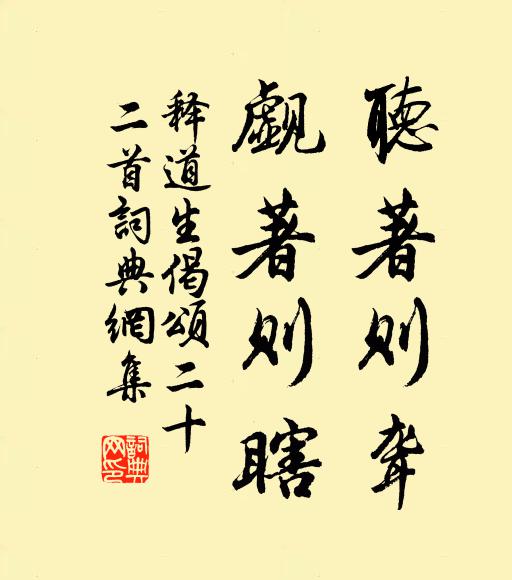 聽著則聾
覷著則瞎
释道生偈頌二十
二首詞典網集
詞典网印